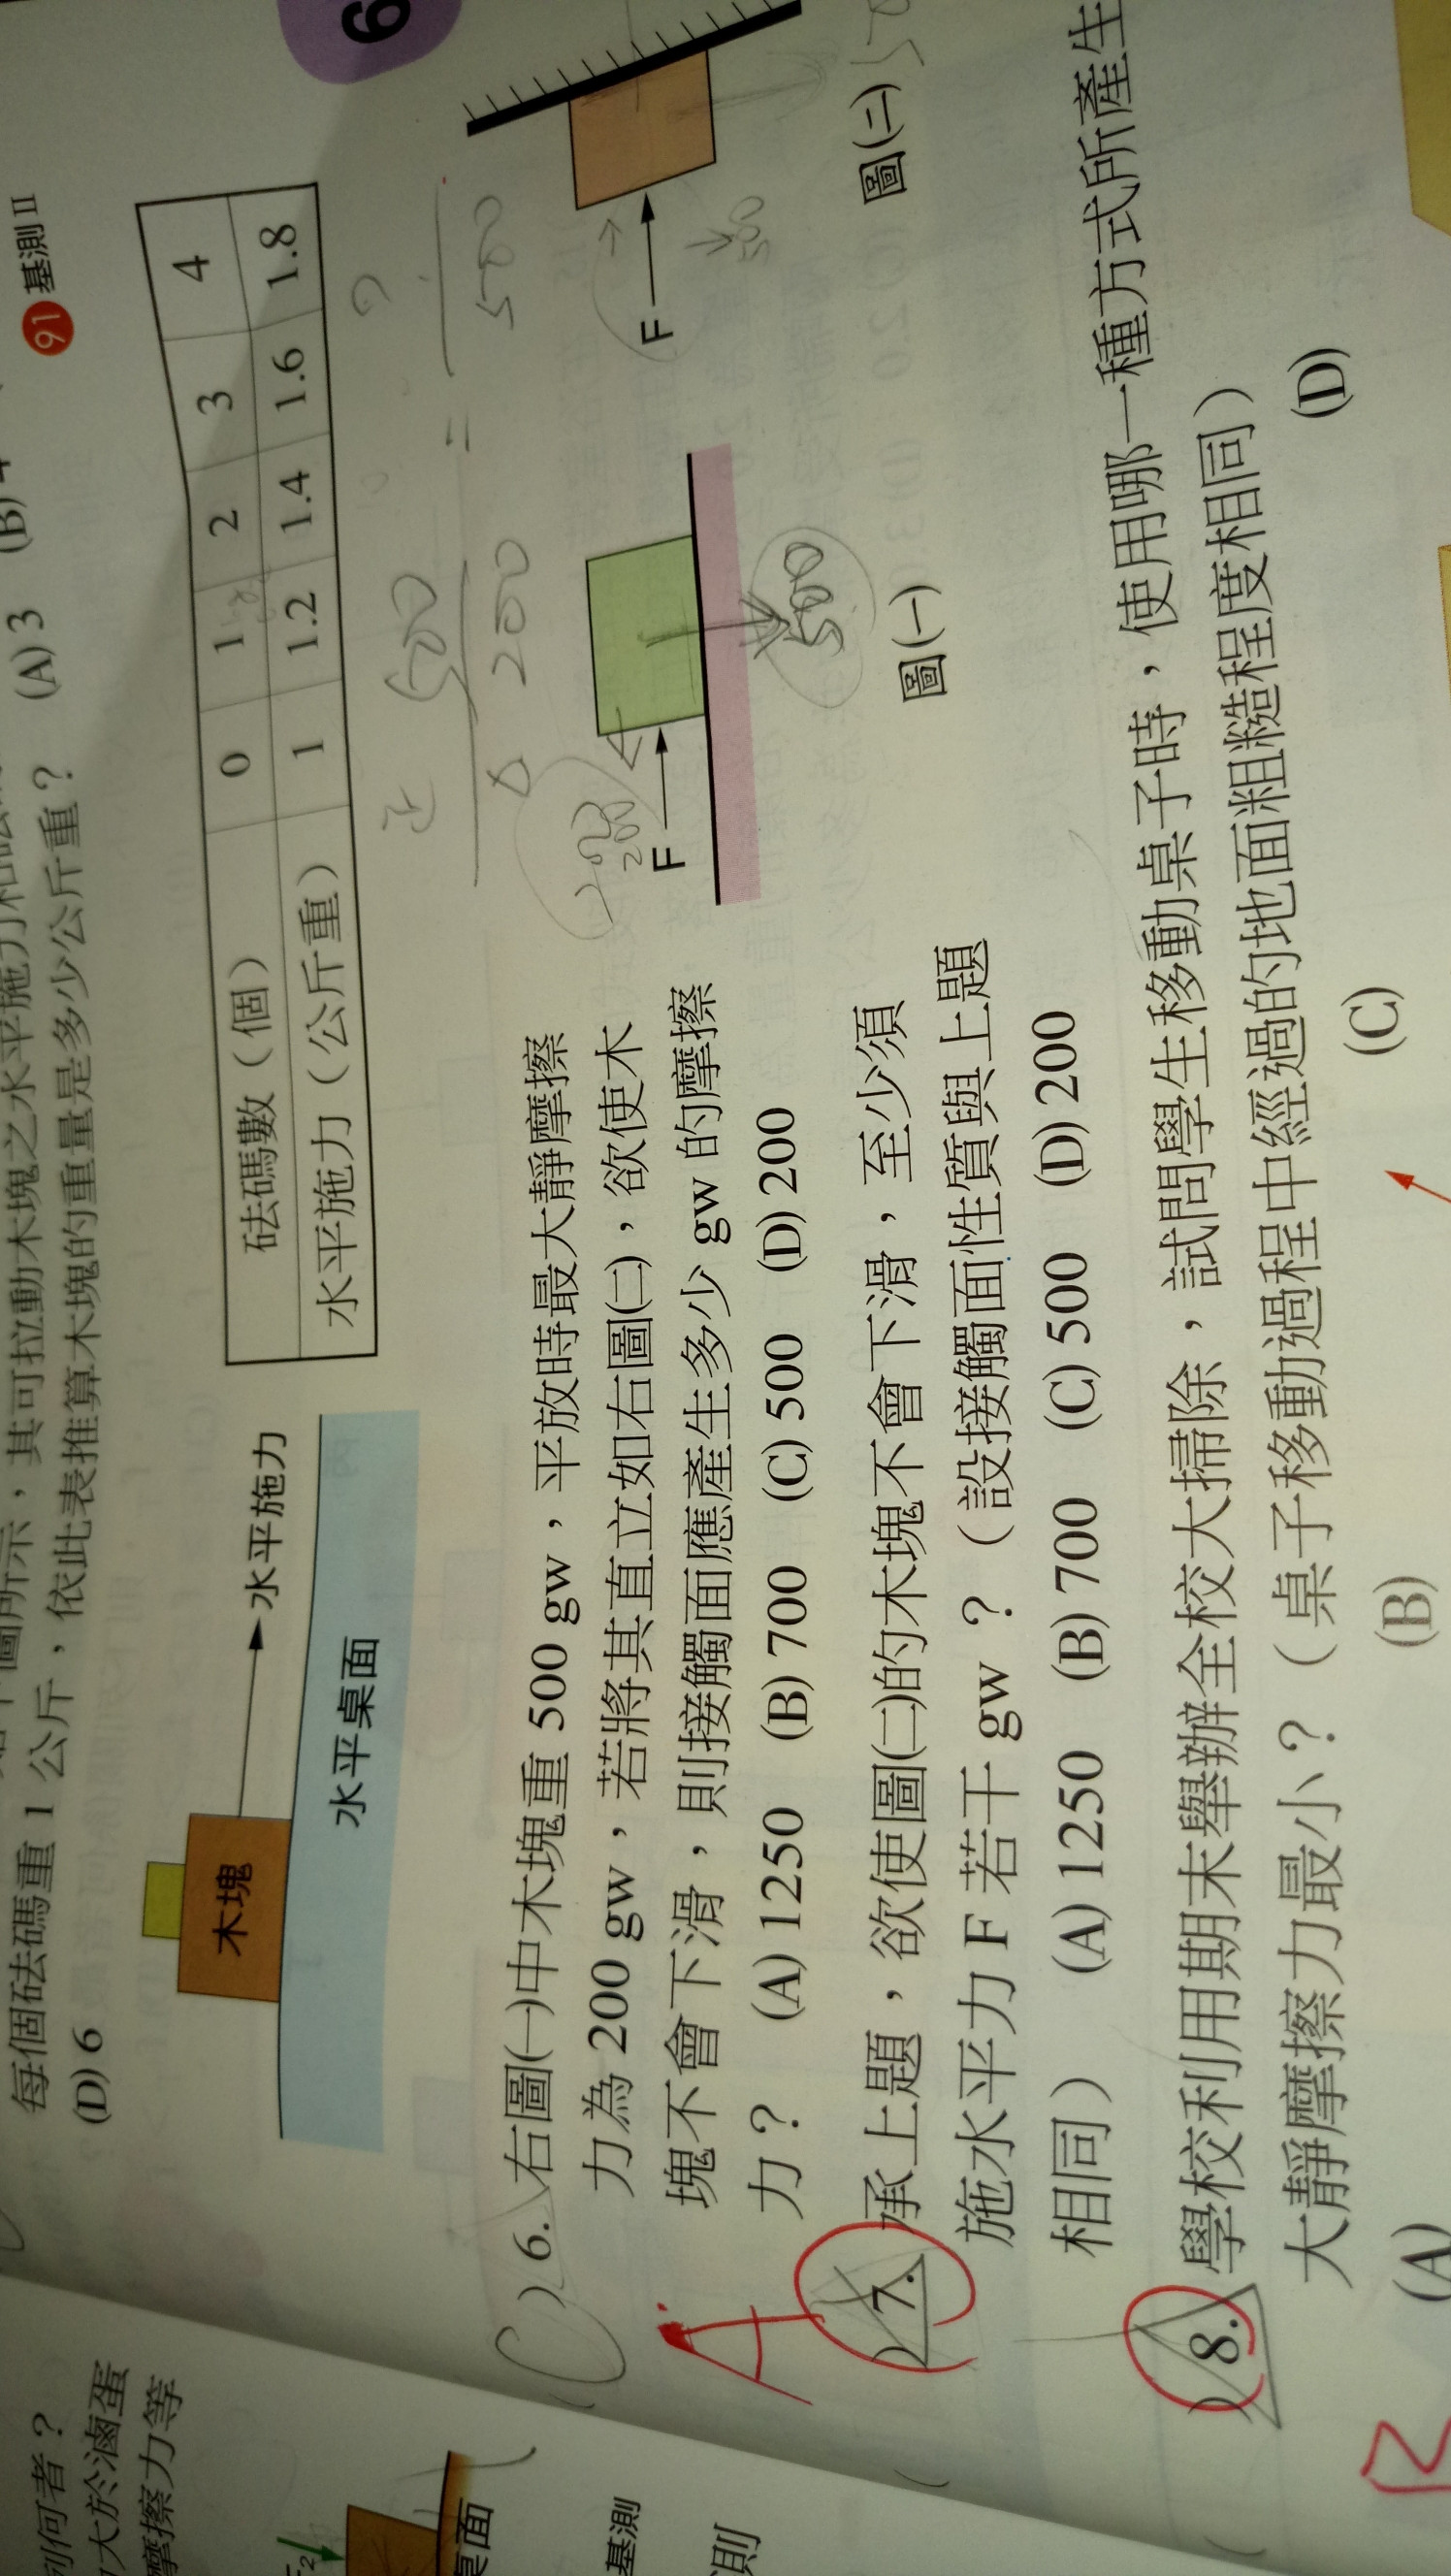 91 基測II
(A) 3
每個砝碼重 1 公斤，依此表推算木塊的重量是多少公斤重？
(D) 6
砝碼數（個） 0 1 2 3 4
水平施力（公斤重） 1 1.2 1.4 1.6 1.8
木塊
水平施力
水平桌面
(C) 6. 右圖(一)中木塊重 500 gw，平放時最大靜摩擦
力為 200 gw，若將其直立如右圖(二)，欲使木
塊不會下滑，則接觸面應產生多少 gw 的摩擦
力？ (A) 1250 (B) 700 (C) 500 (D) 200
正 500
200
=
?
500
200
F
500
圖(一)
F
500
圖(二)
A
7. 承上題，欲使圖(二)的木塊不會下滑，至少須
施水平力 F 若干 gw？（設接觸面性質與上題
相同） (A) 1250 (B) 700 (C) 500 (D) 200
8. 學校利用期末舉辦全校大掃除，試問學生移動桌子時，使用哪一種方式所產生
大靜摩擦力最小？（桌子移動過程中經過的地面粗糙程度相同）
(A) (B) (C) (D)
列何者？
大於滷蛋
摩擦力等
桌面
基測
則